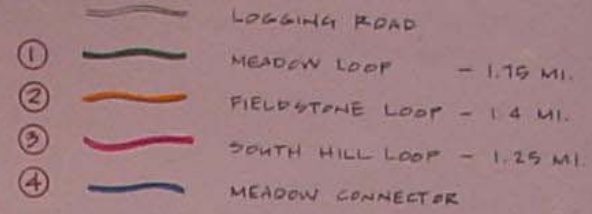 LOGGING ROAD
① MEADOW LOOP - 1.75 MI.
② FIELDSTONE LOOP - 1.4 MI.
③ SOUTH HILL LOOP - 1.25 MI.
④ MEADOW CONNECTOR